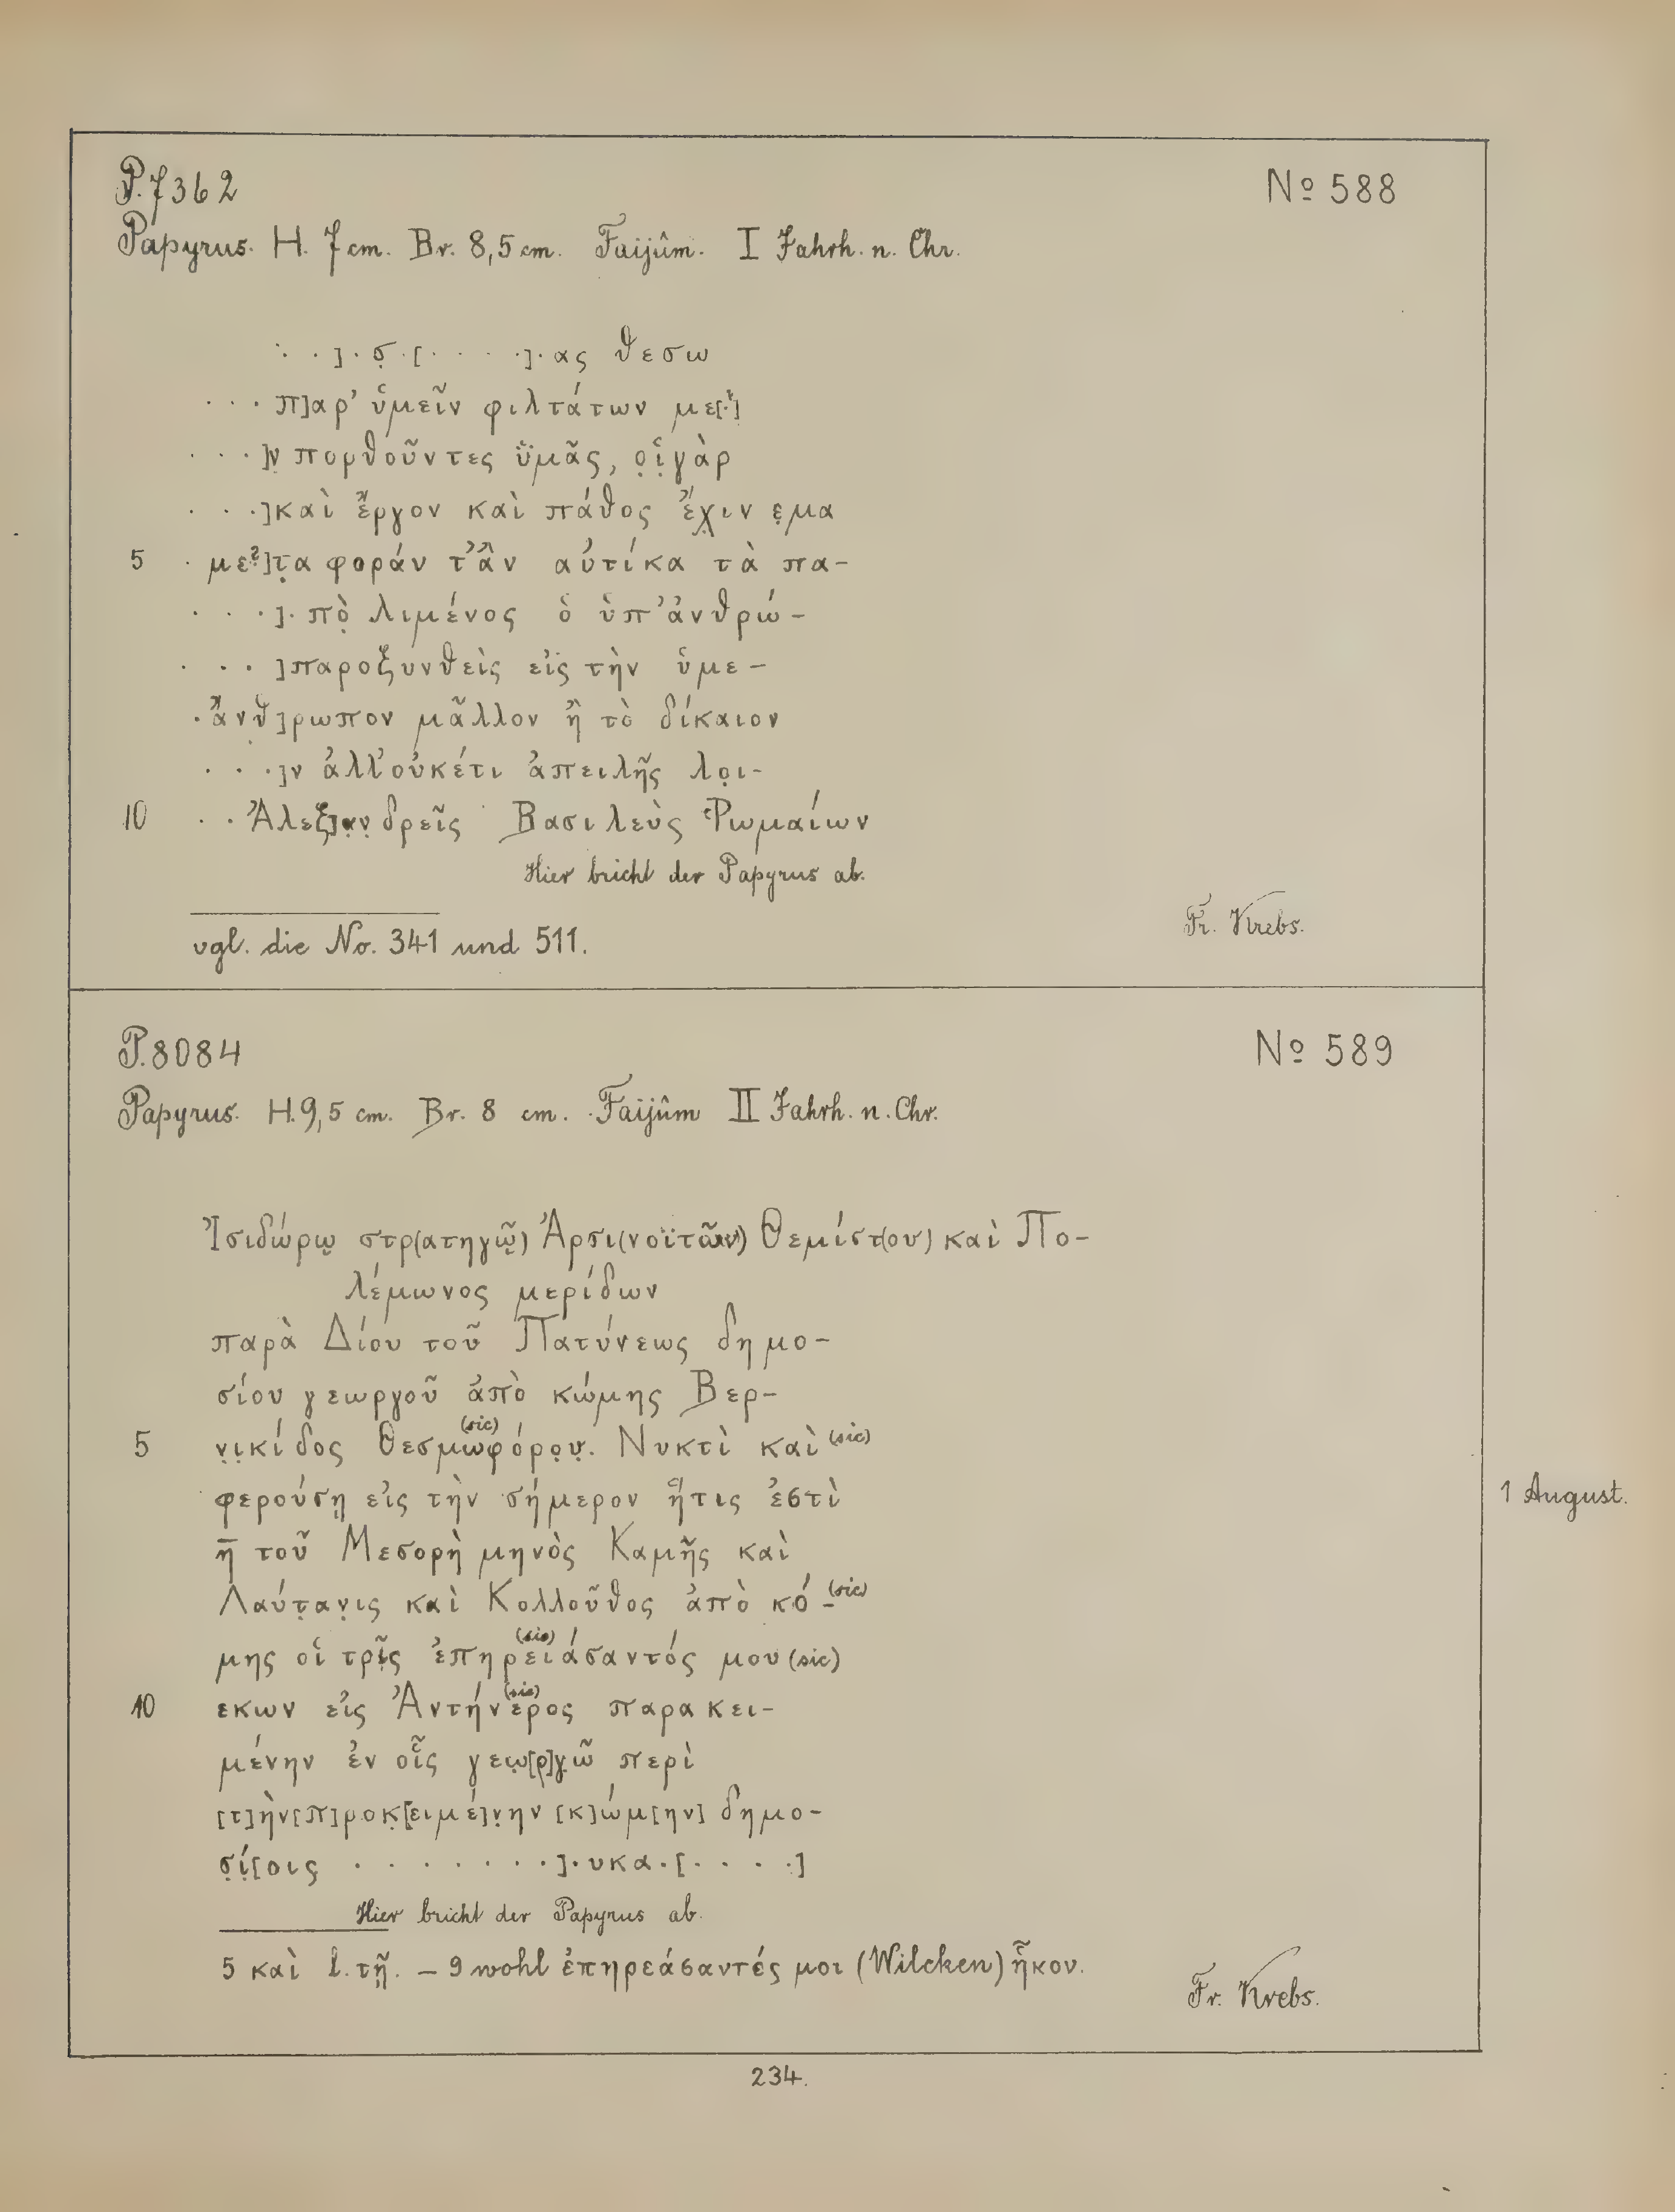 P. 7362
№ 588
Papyrus. H. 7 cm. Br. 8,5 cm. Faijûm. I Jahrh. n. Chr.
· · ] · σ̣ · [ · · · · ] · ας θεσω
· · · π]αρ’ ὑμεῖν φιλτάτων με[·?]
· · · ]ν̣ πορθοῦντες ὑ̈μᾶς, ο̣ἱ̣ γὰρ
· · · ]καὶ ἔργον καὶ πάθος ἔχ̣ιν ε̣μα
5 · με?]τ̣α φοράν τ’ἂν αὐτίκα τὰ πα-
· · · ] · πὸ̣ λιμένος ὁ ὑπ’ἀνθρώ-
· · · ]παροξυνθεὶς εἰς τὴν ὑμε-
· ἄνθ]ρωπον μᾶλλον ἢ τὸ δίκαιον
· · · ]ν ἀλλ’οὐκέτι ἀπειλῆς λο̣ι-
10 · · Ἀλεξ]α̣ν̣δρεῖς Βασιλεὺς Ῥωμαίων
Hier bricht der Papyrus ab.
Fr. Krebs.
vgl. die No. 341 und 511.
P. 8084
№ 589
Papyrus. H. 9,5 cm. Br. 8 cm. Faijûm II Jahrh. n. Chr.
Ἰσιδώρῳ στρ(ατηγῷ) Ἀρσι(νοϊτῶν) Θεμίστ(ου) καὶ Πο-
λέμωνος μερίδων
παρὰ Δίου τοῦ Πατύνεως δημο-
σίου γεωργοῦ ἀπὸ κώμης Βερ-
5 ν̣ι̣κίδος Θεσμω(sic)φόρο̣υ̣. Νυκτὶ καὶ (sic)
φερούσῃ εἰς τὴν σήμερον ἥτις ἐστὶ
1 August.
η̄ τοῦ Μεσορὴ μηνὸς Καμῆς καὶ
Λαύτ̣αν̣ις καὶ Κολλοῦθος ἀπὸ κό- (sic)
μης οἱ τρῖ̣ς ἐπηρει(sic)άσαντός μου (sic)
10 εκων εἰς Ἀντήνε(sic)ρος παρακει-
μένην ἐν οἷς γεω̣[ρ]γ̣ῶ περὶ
[τ]ὴν[π]ροκ̣[ειμέ]ν̣ην [κ]ώμ[ην] δημο-
σ̣ί̣[οις · · · · · · · ] · υκα · [ · · · · ]
Hier bricht der Papyrus ab.
5 καὶ l. τῇ. – 9 wohl ἐπηρεάσαντές μοι (Wilcken) ἧκον.
Fr. Krebs.
234.